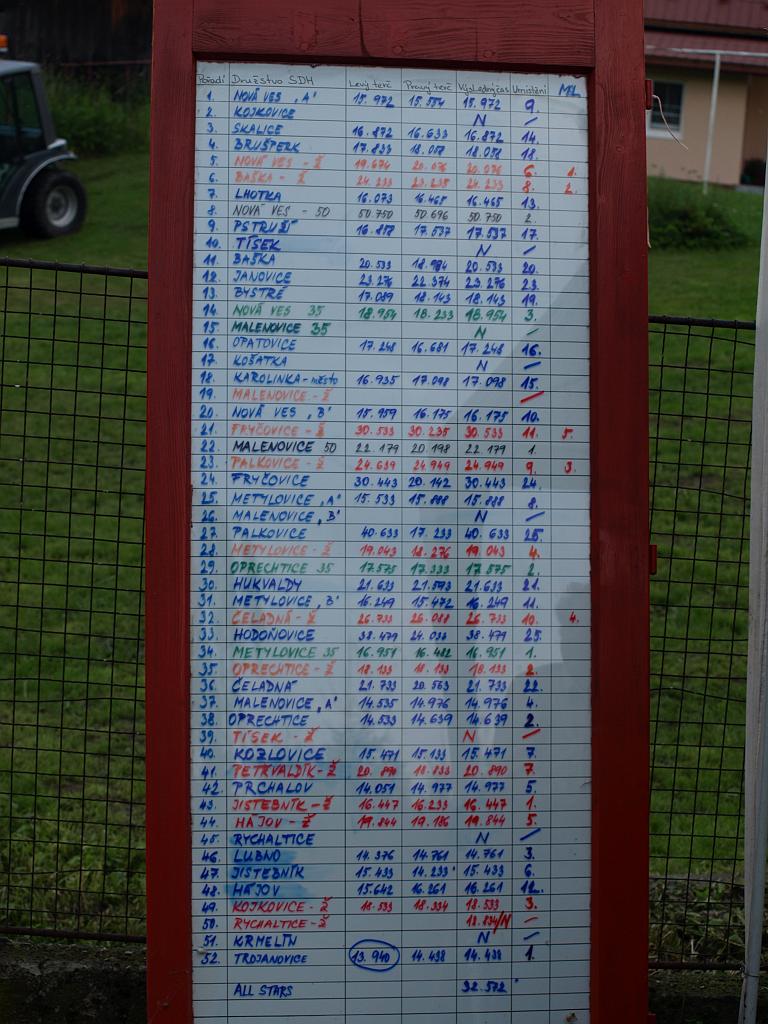 Pořadí Družstvo SDH Levý terč Pravý terč Výsledný čas Umístění ML
1. NOVÁ VES "A" 15.972 15.554 15.972 9.
2. KOJKOVICE N –
3. SKALICE 16.872 16.633 16.872 14.
4. BRUŠPERK 17.833 18.058 18.058 18.
5. NOVÁ VES - Ž 19.674 20.076 20.076 6. 1.
6. BAŠKA - Ž 24.233 23.235 24.233 8. 2.
7. LHOTKA 16.073 16.465 16.465 13.
8. NOVÁ VES - 50 50.750 50.696 50.750 2.
9. PSTRUŽÍ 16.858 17.537 17.537 17.
10. TÍSEK N –
11. BAŠKA 20.533 18.984 20.533 20.
12. JANOVICE 23.276 22.374 23.276 23.
13. BYSTRÉ 17.089 18.143 18.143 19.
14. NOVÁ VES 35 18.954 18.233 18.954 3.
15. MALENOVICE 35 N –
16. OPATOVICE 17.248 16.681 17.248 16.
17. KOŠATKA N –
18. KAROLINKA - město 16.935 17.098 17.098 15.
19. MALENOVICE - Ž –
20. NOVÁ VES "B" 15.959 16.175 16.175 10.
21. FRYČOVICE - Ž 30.533 30.235 30.533 11. 5.
22. MALENOVICE 50 22.179 20.198 22.179 1.
23. PALKOVICE - Ž 24.639 24.949 24.949 9. 3.
24. FRYČOVICE 30.443 20.142 30.443 24.
25. METYLOVICE "A" 15.533 15.888 15.888 8.
26. MALENOVICE "B" N –
27. PALKOVICE 40.633 17.233 40.633 26.
28. METYLOVICE - Ž 19.043 18.276 19.043 4.
29. OPRECHTICE 35 17.575 17.333 17.575 2.
30. HUKVALDY 21.633 21.593 21.633 21.
31. METYLOVICE "B" 16.249 15.472 16.249 11.
32. ČELADNÁ - Ž 26.733 26.088 26.733 10. 4.
33. HODOŇOVICE 38.479 24.036 38.479 25.
34. METYLOVICE 35 16.951 16.482 16.951 1.
35. OPRECHTICE - Ž 18.133 18.133 18.133 2.
36. ČELADNÁ 21.733 20.563 21.733 22.
37. MALENOVICE "A" 14.535 14.976 14.976 4.
38. OPRECHTICE 14.533 14.639 14.639 2.
39. TÍSEK - Ž N –
40. KOZLOVICE 15.471 15.133 15.471 7.
41. PETŘVALDÍK - Ž 20.890 18.833 20.890 7.
42. PRCHALOV 14.051 14.977 14.977 5.
43. JISTEBNÍK - Ž 16.447 16.233 16.447 1.
44. HÁJOV - Ž 19.844 19.186 19.844 5.
45. RYCHALTICE N –
46. LUBNO 14.376 14.761 14.761 3.
47. JISTEBNÍK 15.433 14.233 15.433 6.
48. HÁJOV 15.642 16.261 16.261 12.
49. KOJKOVICE - Ž 18.533 18.334 18.533 3.
50. RYCHALTICE - Ž 18.834/N –
51. KRMELÍN N –
52. TROJANOVICE 13.940 14.438 14.438 1.
ALL STARS 32.572